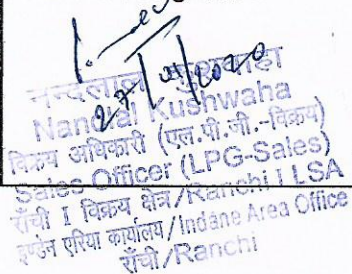 नन्दलाल कुशवाहा
Nandlal Kushwaha
विक्रय अधिकारी (एल.पी.जी.-विक्रय)
Sales Officer (LPG-Sales)
राँची I विक्रय क्षेत्र/Ranchi I LSA
इण्डेन एरिया कार्यालय/Indane Area Office
राँची/Ranchi